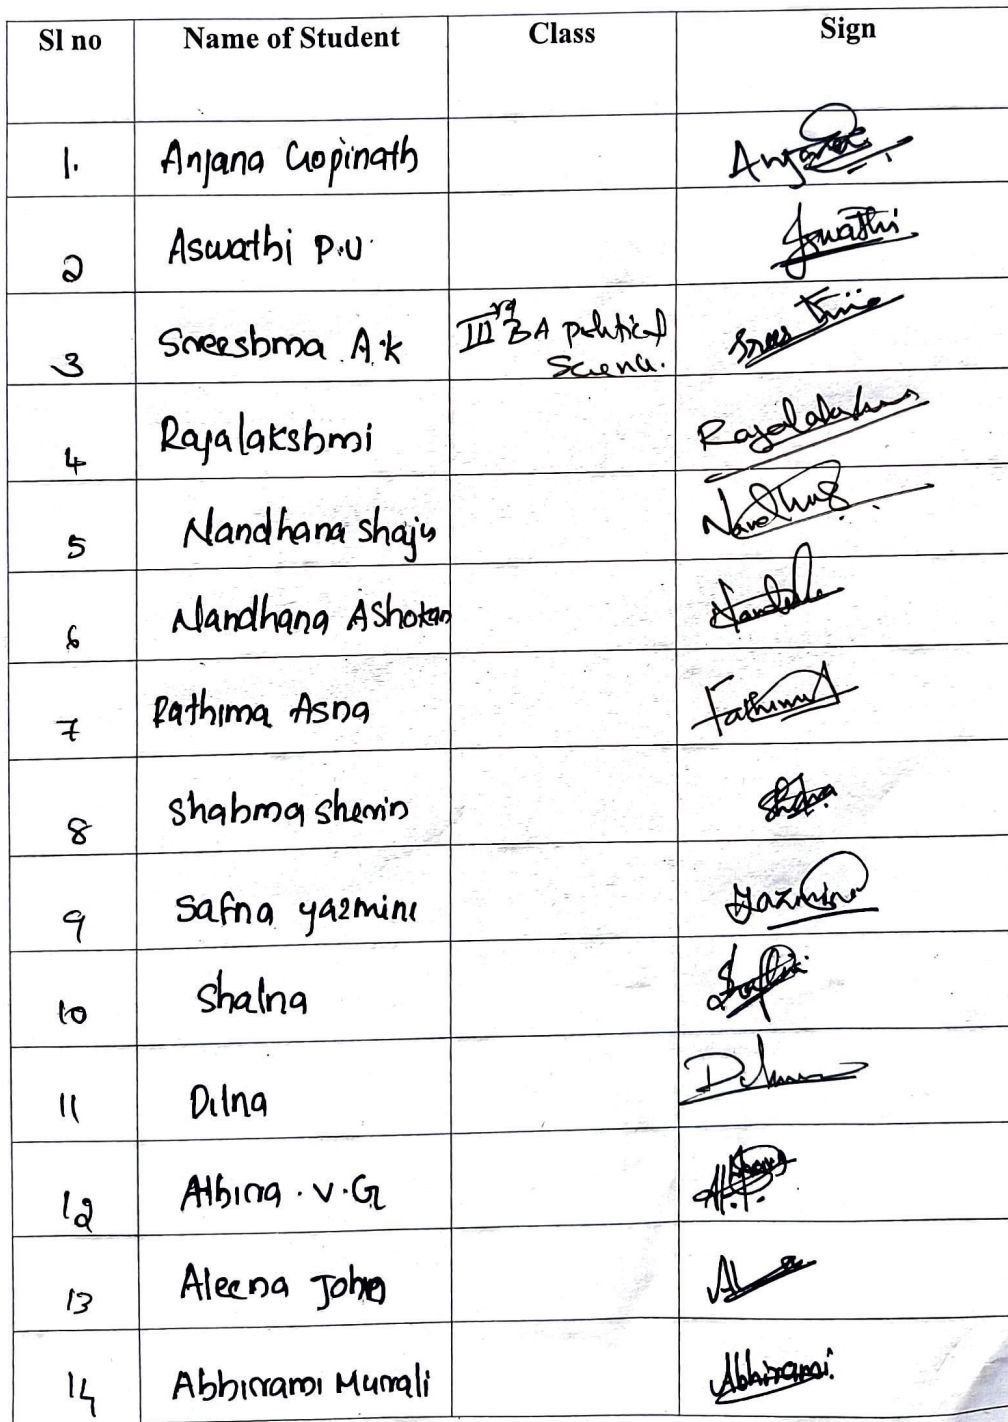 Sl no Name of Student Class Sign
1. Anjana Gopinath Anjana
2 Aswathi P.U. Aswathi
3 Sreeshma A.K IIIrd BA political
Science.
4 Rajalakshmi Rajalakshmi
5 Nandhana Shaju Nandhu
6 Nandhana Ashokan
7 Fathima Asna Fathima
8 Shabma Sherin
9 Safna yazmini Yazmin
10 Shalna
11 Dilna Dilna
12 Albina . V . G
13 Aleena John
14 Abhirami Murali Abhirami.